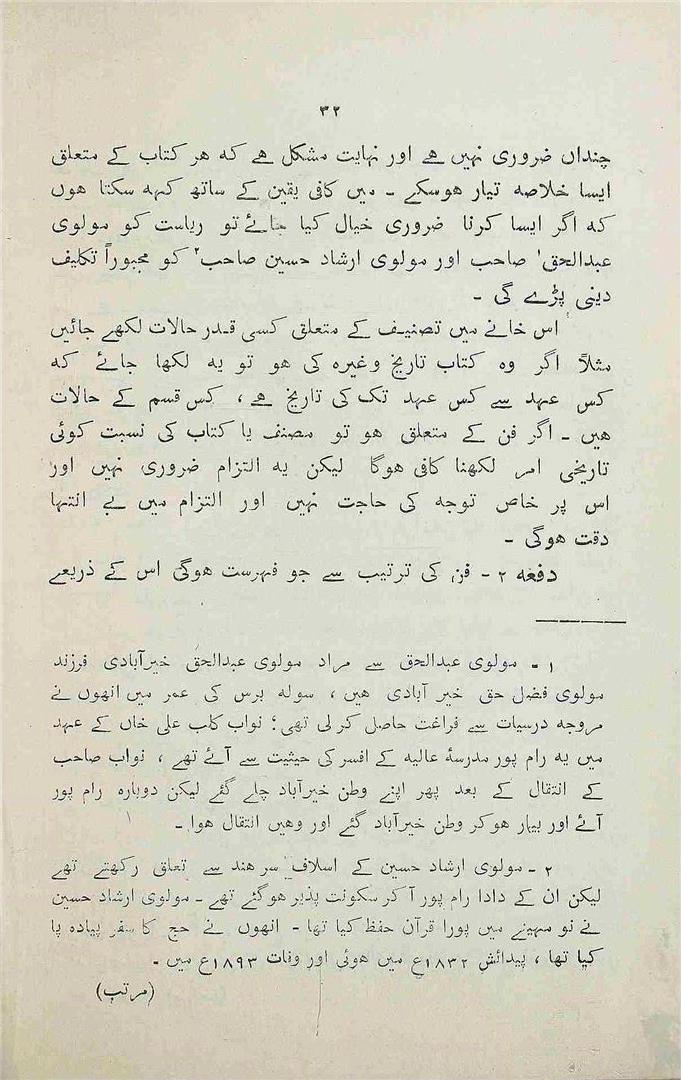 ۳۲
چنداں ضروری نہیں ہے اور نہایت مشکل ہے کہ ہر کتاب کے متعلق
ایسا خلاصہ تیار ہوسکے ۔ میں کافی یقین کے ساتھ کہہ سکتا ہوں
کہ اگر ایسا کرنا ضروری خیال کیا جائے تو ریاست کو مولوی
عبدالحق۱ صاحب اور مولوی ارشاد حسین صاحب۲ کو مجبوراً تکلیف
دینی پڑے گی ۔
اس خانے میں تصنیف کے متعلق کسی قدر حالات لکھے جائیں
مثلاً اگر وہ کتاب تاریخ وغیرہ کی ہو تو یہ لکھا جائے کہ
کس عہد سے کس عہد تک کی تاریخ ہے ، کس قسم کے حالات
ہیں ۔ اگر فن کے متعلق ہو تو مصنف یا کتاب کی نسبت کوئی
تاریخی امر لکھنا کافی ہوگا لیکن یہ التزام ضروری نہیں اور
اس پر خاص توجہ کی حاجت نہیں اور التزام میں بے انتہا
دقت ہوگی ۔
دفعہ ۲ ۔ فن کی ترتیب سے جو فہرست ہوگی اس کے ذریعے
۱ ۔ مولوی عبدالحق سے مراد مولوی عبدالحق خیرآبادی فرزند
مولوی فضل حق خیر آبادی ہیں ، سولہ برس کی عمر میں انھوں نے
مروجہ درسیات سے فراغت حاصل کر لی تھی ؛ نواب کلب علی خاں کے عہد
میں یہ رام پور مدرسۂ عالیہ کے افسر کی حیثیت سے آئے تھے ، نواب صاحب
کے انتقال کے بعد پھر اپنے وطن خیرآباد چلے گئے لیکن دوبارہ رام پور
آئے اور بیمار ہوکر وطن خیرآباد گئے اور وہیں انتقال ہوا ۔
۲ ۔ مولوی ارشاد حسین کے اسلاف سر ہند سے تعلق رکھتے تھے
لیکن ان کے دادا رام پور آ کر سکونت پذیر ہوگئے تھے ۔ مولوی ارشاد حسین
نے نو مہینے میں پورا قرآن حفظ کیا تھا ۔ انھوں نے حج کا سفر پیادہ پا
کیا تھا ، پیدائش ۱۸۳۲ع میں ہوئی اور وفات ۱۸۹۳ع میں ۔
(مرتب)